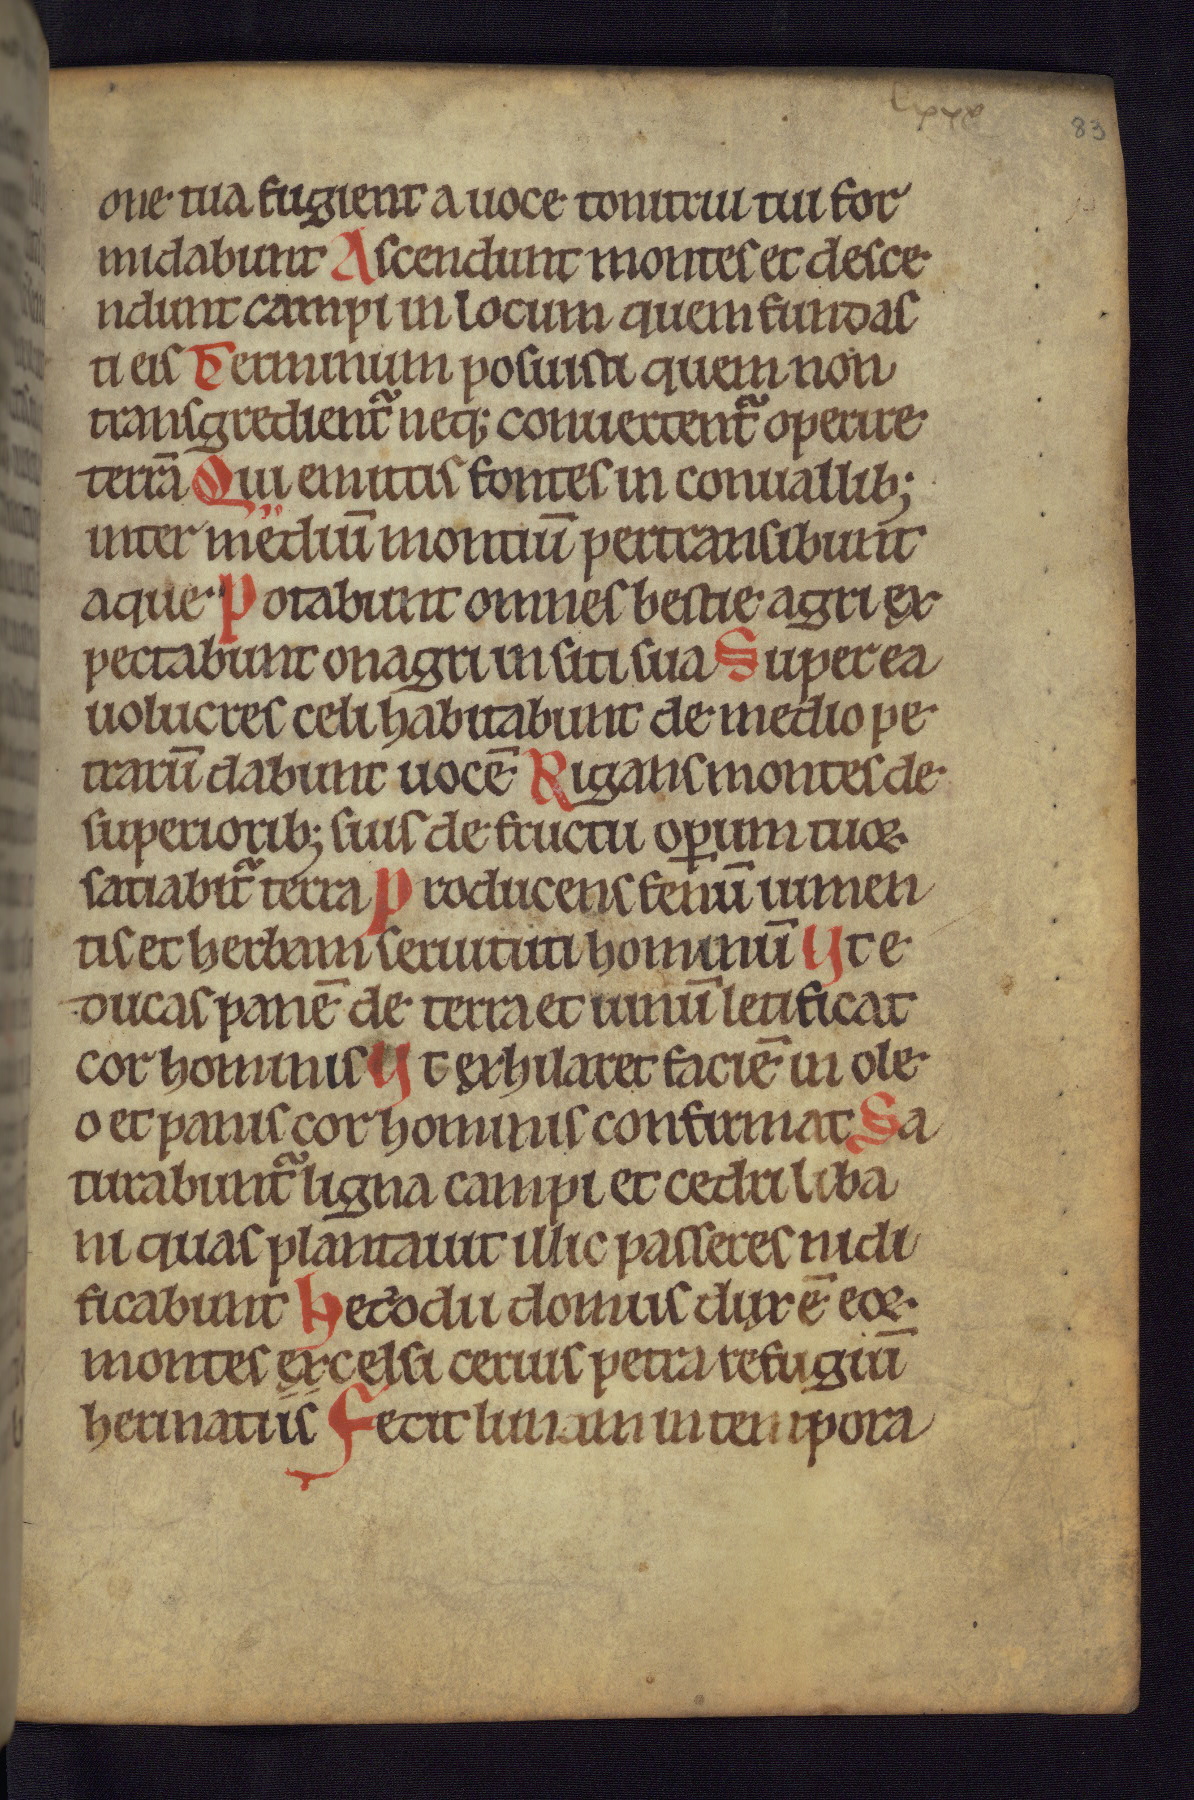 83
one tua fugient a uoce tonitrui tui for
midabunt Ascendunt montes et desce
ndunt campi in locum quem fundas
ti eis Terminum posuisti quem non
transgredient᷑ neq; conuertent᷑ operire
terrā Qui emittis fontes in conuallib;
inter mediū montiū pertransibunt
aque Potabunt omnes bestie agri ex
pectabunt onagri in siti sua Super ea
uolucres celi habitabunt de medio pe
trarū dabunt uocē Rigans montes de
superiorib; suis de fructu oꝑum tuoꝝ
satiabit᷑ terra Producens fenū iumen
tis et herbam seruituti hominū Ut e
ducas panē de terra et uinū letificat
cor hominis Ut exhilaret faciē in ole
o et panis cor hominis confirmat Sa
turabunt᷑ ligna campi et cedri liba
ni quas plantauit illic passeres nidi
ficabunt Herodii domus dux ē eoꝝ
montes excelsi ceruis petra refugiū
herinatiis Fecit lunam in tempora